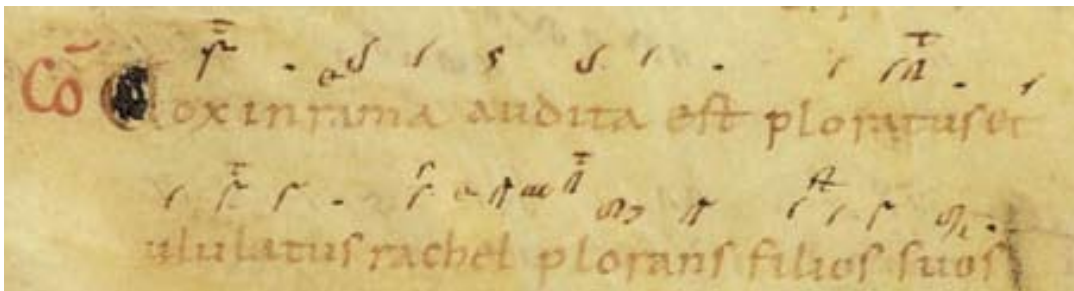 Cō Vox in rama audita est ploratus et
ululatus rachel plorans filios suos